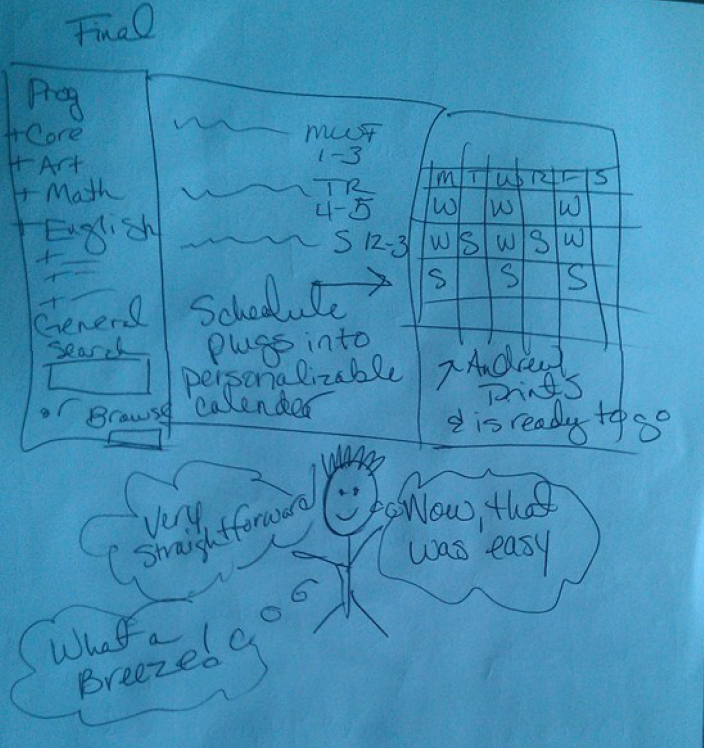 Final
Prog
+ Core
+ Art
+ Math
+ English
+
+
+
General
Search
or Browse
MWF
1-3
TR
4-5
S 12-3
Schedule
plugs into
personalizable
calender
M T W R F S
W W W
W S W S W
S S S
Andrew
Prints
& is ready to go
Very
Straightforward
Wow, that
was easy
What a
Breeze!